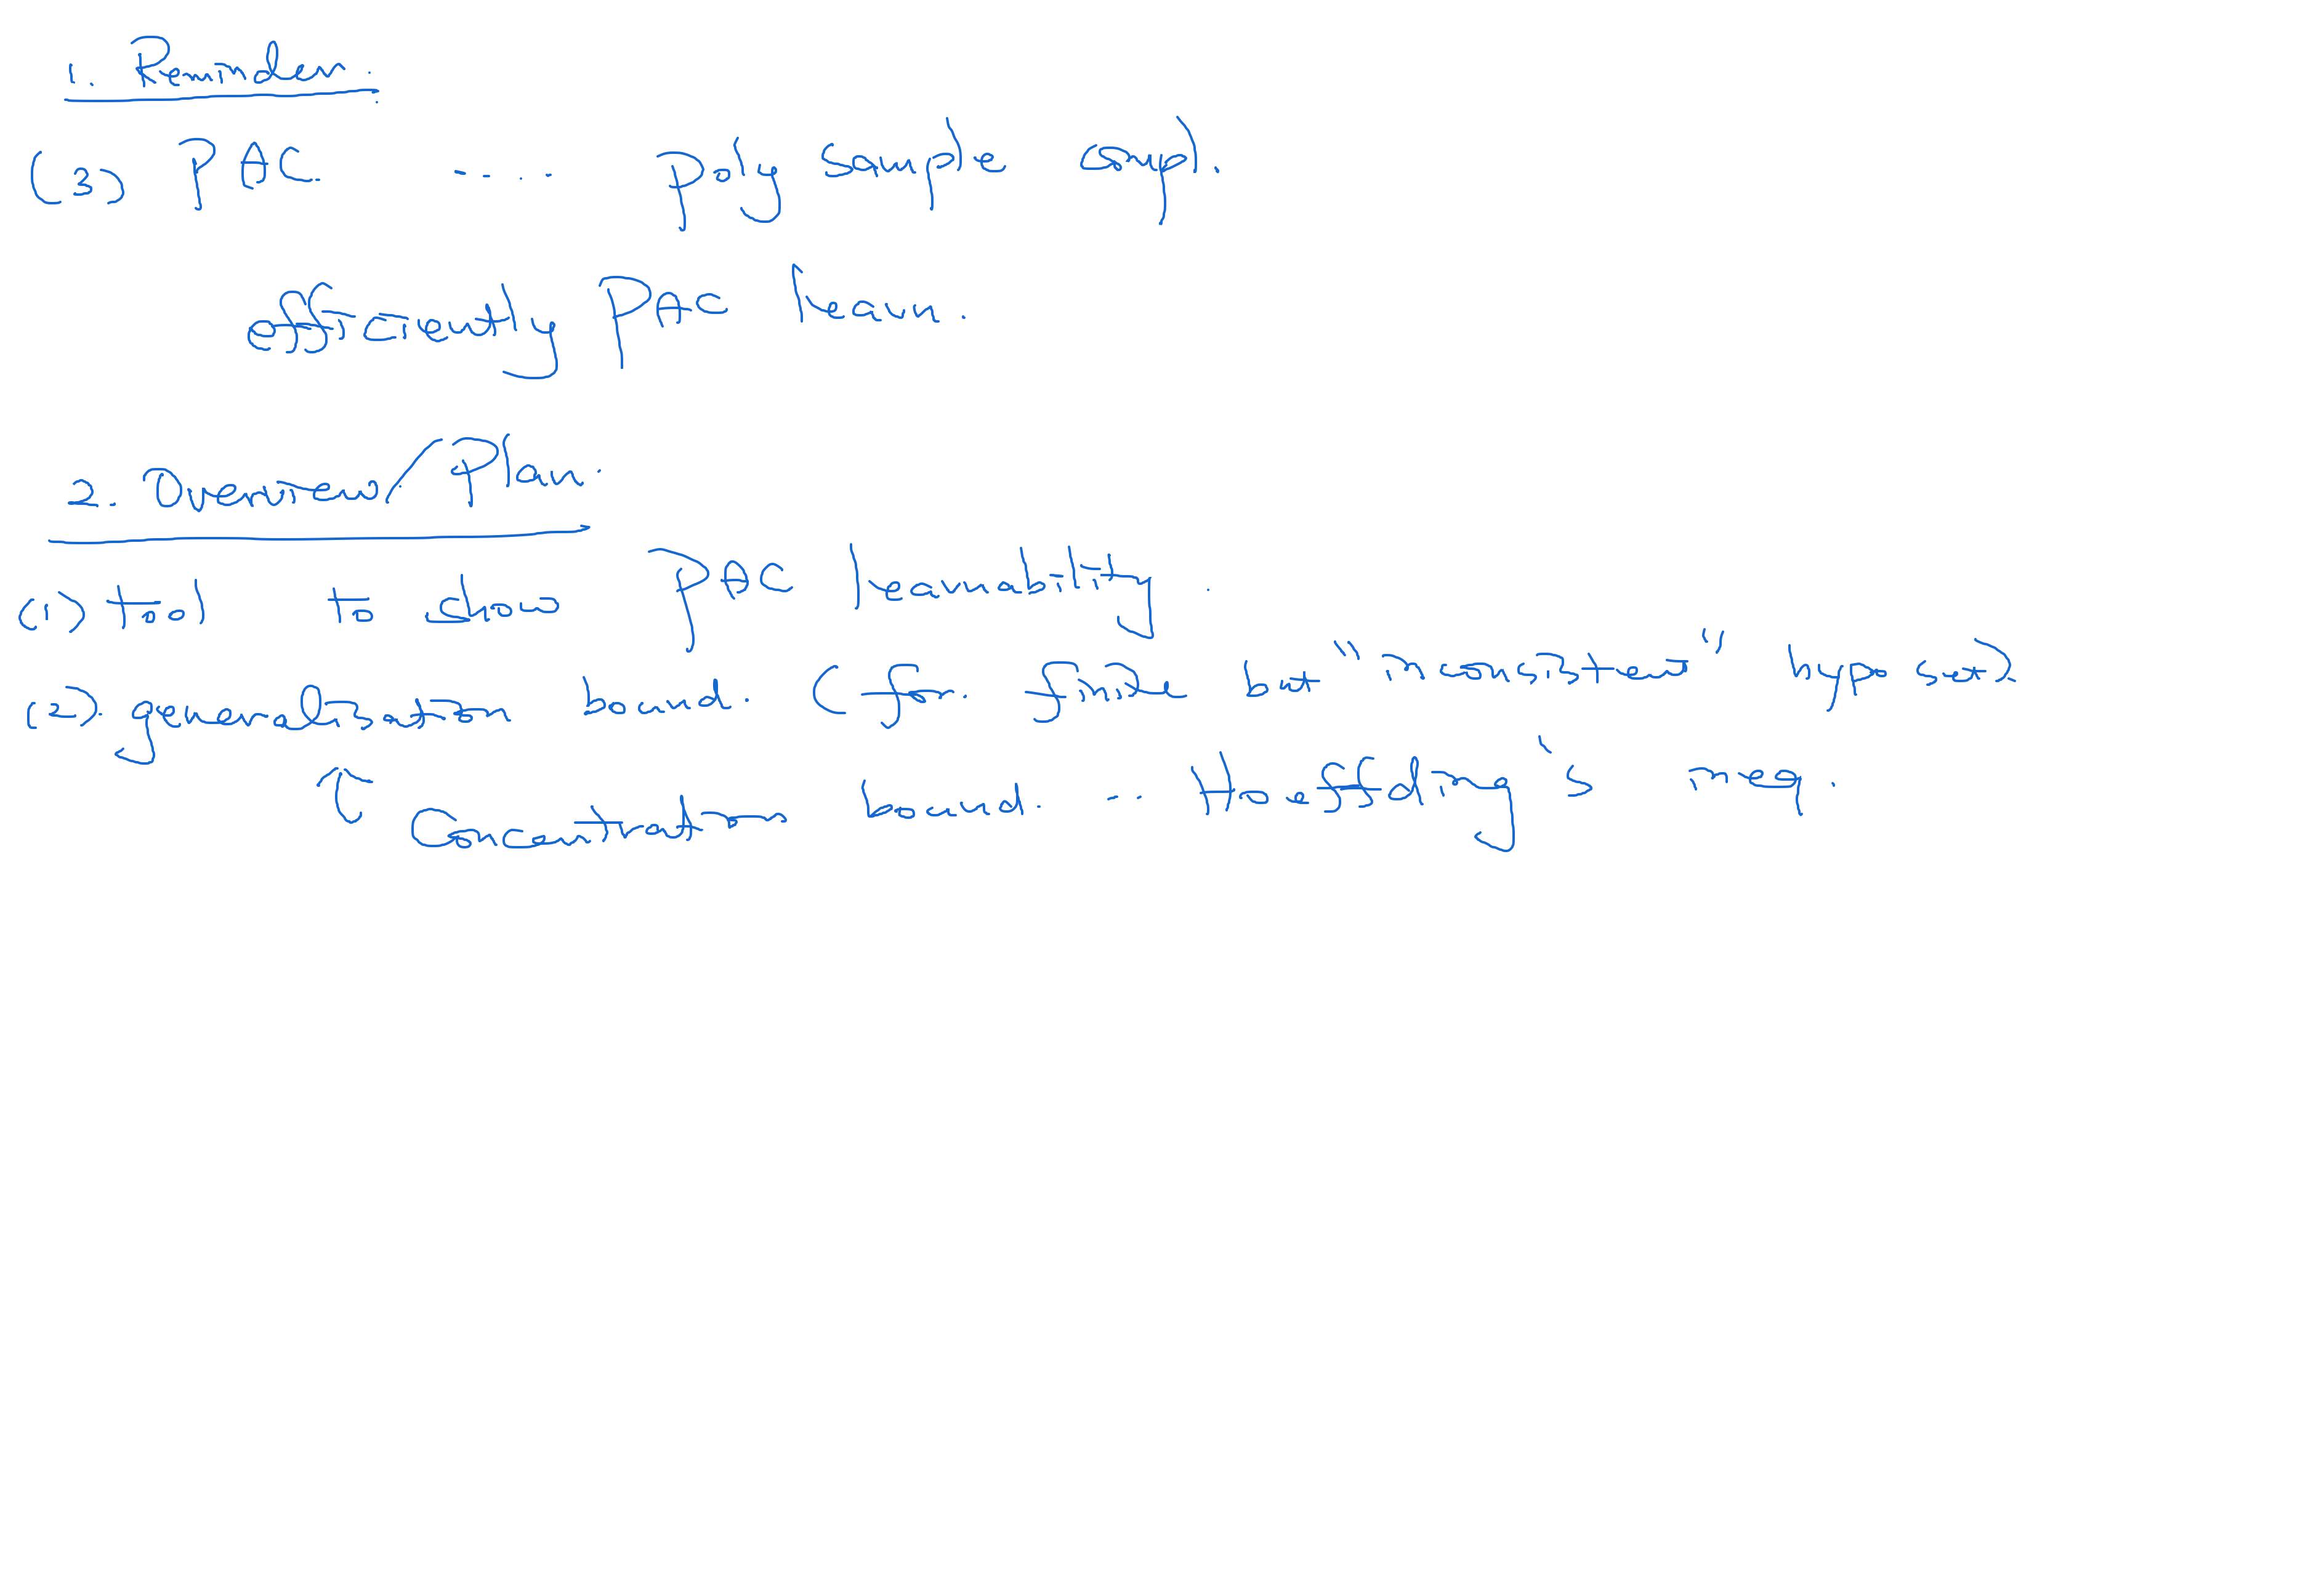 1. Reminder.
(3) PAC ---- poly sample comp.
efficiently PAC learn.
2. Overview/Plan.
(1) tool to show PAC learnability.
(2). generalisation bound. (for finite but "inconsistent" hypo set)
↑ Concentration bound. ... Hoeffding's ineq.